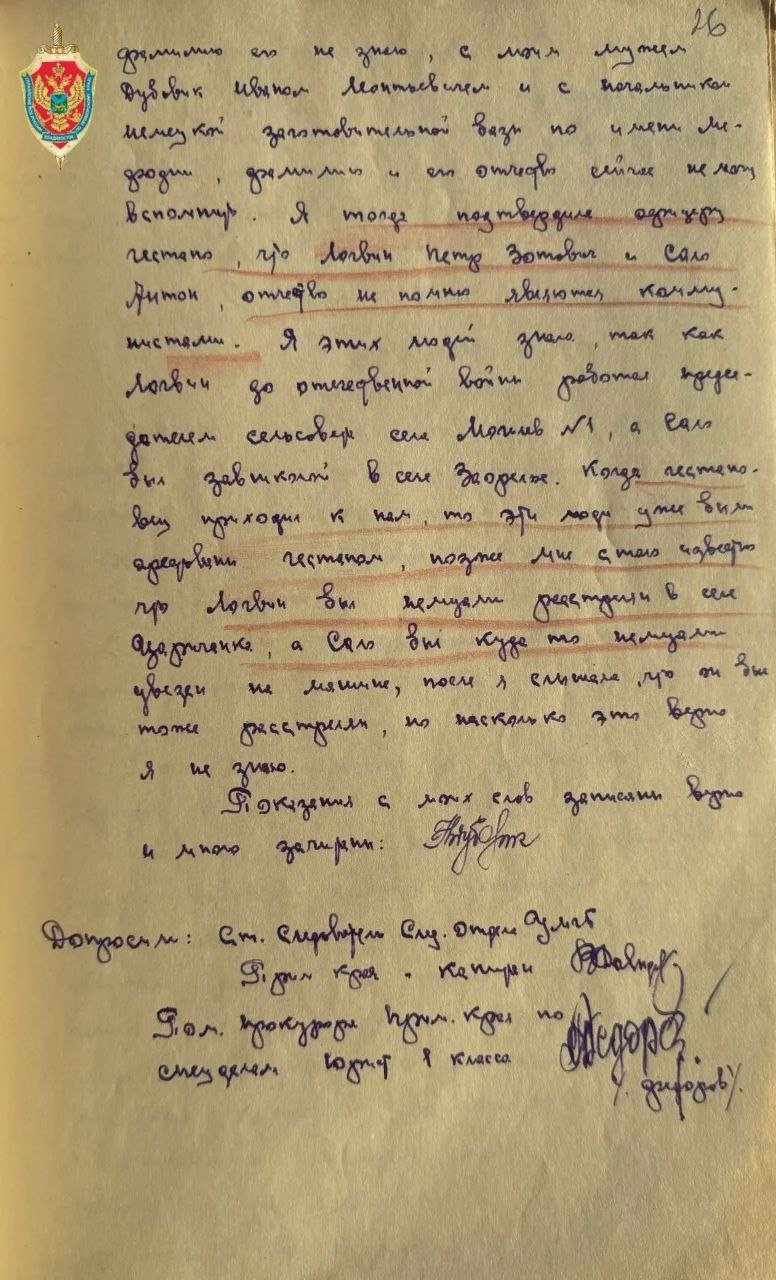 26
фамилию его не знаю, с моим мужем
Дубовик Иваном Леонтьевичем и с начальником
немецкой заготовительной базы по имени Ме-
фодии, фамилию и его отчество сейчас не могу
вспомнить. Я тогда подтвердила офицеру
гестапо, что Логвин Петр Зотович и Сало
Антон, отчество не помню являются комму-
нистами. Я этих людей знала, так как
Логвин до отечественной войны работал предсе-
дателем сельсовета села Могилев №1, а Сало
был завшколой в селе Заорелье. Когда гестапо-
вец приходил к нам, то эти люди уже были
арестованы гестапом, позже мне стало известно
что Логвин был немцами расстрелян в селе
Царичанка, а Сало был куда то немцами
увезен на машине, после я слышала, что он был
тоже расстрелян, но насколько это верно
я не знаю.
Показания с моих слов записаны верно
и мною зачитаны:
Допросили: Ст. Следователь След. Отдела УМГБ
Прим края - капитан
Пом. прокурора Прим. края по
спецделам Юрист 1 класса
/. Федоров /.